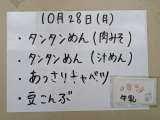 10月28日(月)
・タンタンめん(肉みそ)
・タンタンめん(汁めん)
・あっさりキャベツ
・豆こんぶ
牛乳